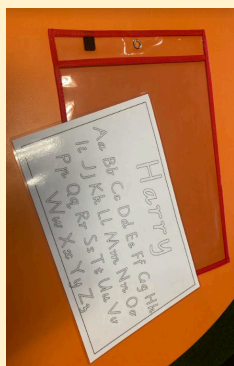 Harry
Aa Bb Cc Dd Ee Ff Gg Hh
Ii Jj Kk Ll Mm Nn Oo
Pp Qq Rr Ss Tt Uu Vv
Ww Xx Yy Zz